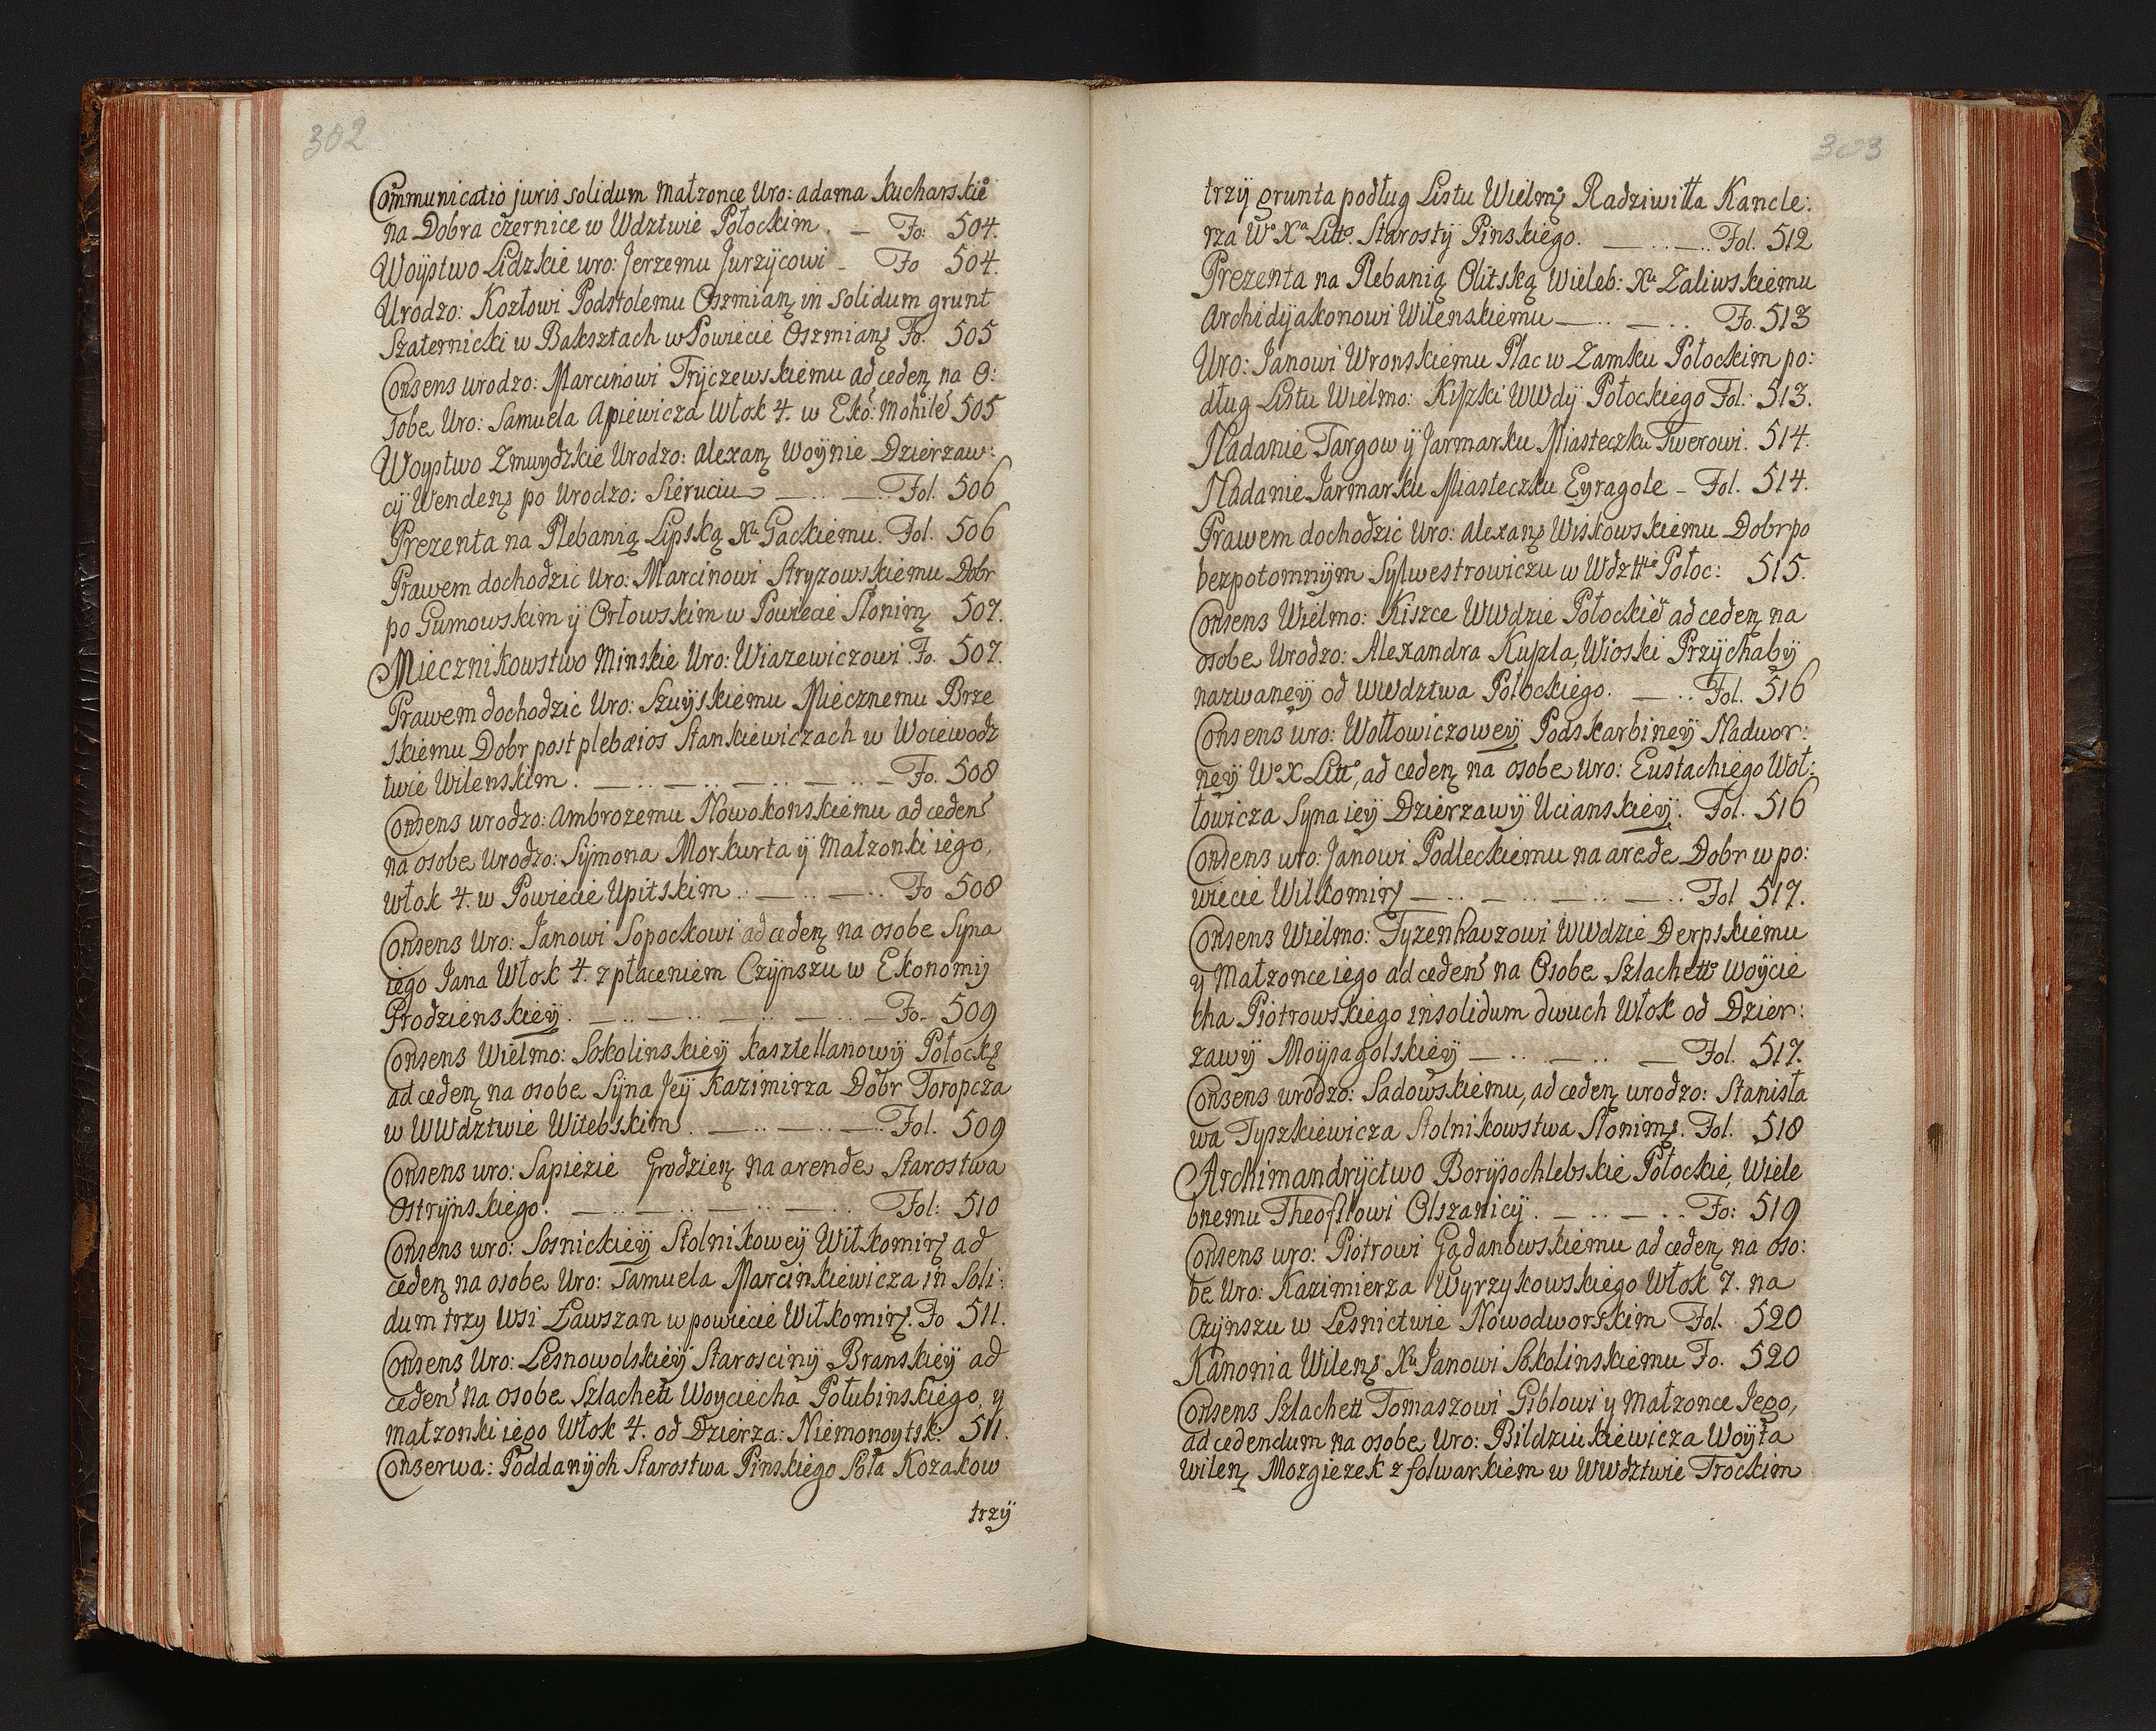 302
Communicatio juris solidum Małzonce Uro: adama Kucharskie°
na Dobra czernice w Wdztwie Połockim. — Fo: 504.
Woÿstwo Lidzkie uro: Jerzemu Jurzÿcowi — Fo 504.
Urodzo: Kozłowi Podstolemu Oszmian: in Solidum grunt
Szaternicki w Baksztach w Powiecie Oszmian: Fo. 505
Consens urodzo: Marcinowi Trÿczewskiemu ad ceden: na O:
sobe Uro: Samuela Apiewicza Włok 4. w Eko: Mohile: 505
Woyptwo Zmuydzkie Urodzo: Alexan: Woÿnie Dzierzaw:
cÿ Wendens: po Urodzo: Sieruciu — .. — .. Fol. 506
Prezenta na Plebanią Lipską Xu Gackiemu. Fol. 506
Prawem dochodzic Uro: Marcinowi Stryzowskiemu Dobr
po Gumowskim ÿ Orłowskim w Powiecie Słonim: 507.
Miecznikowstwo Minskie Uro: Wiazewiczowi. Fo. 507.
Prawem dochodzic Uro: Szuÿskiemu Miecznemu Brze
skiemu Dobr post plebæios Stankiewiczach w Woiewodz
twie Wilenskim. — .. — .. — .. — .. — Fo. 508
Consens urodzo: Ambrozemu Nowokonskiemu ad ceden:
na osobe Urodzo: Sÿmona Morkurta ÿ Małzonki iego,
włok 4. w Powiecie Upitskim .. — .. — .. Fo 508
Consens Uro: Janowi Sopockowi ad ceden: na osobe Syna
iego Jana Włok 4. z płaceniem Czÿnszu w Ekonomij
Grodzienskieÿ. — .. — .. — .. — .. — Fo. 509
Consens Wielmo: Sokolinskieÿ kasztellanowÿ Połocką
ad ceden: na osobe Sÿna Jeÿ Kazimirza Dobr Toropcza
w WWdztwie Witebskim. — .. — .. — .. Fol. 509
Consens uro: Sapiezie Grodzien: na arende Starostwa
Ostrÿnskiego. — .. — .. — .. — .. Fol: 510
Consens uro: Sosnickieÿ Stolnikoweÿ Wiłkomir: ad
ceden: na osobe Uro: Samuela Marcinkiewicza in Soli:
dum trzy Wsi Ławszan w powiecie Wiłkomir: Fo 511.
Consens Uro: Lesnowolskieÿ Staroscinÿ Branskieÿ ad
ceden: na osobe Szlachett Woyciecha Połubinskiego, y
małzonki iego Włok 4. od Dzierza: Niemonoytsk: 511.
Conserwa: Poddanÿch Starostwa Pinskiego Soła Kozakow
trzÿ
303
trzÿ grunta podług Listu Wielmo: Radziwiłła Kancle:
rza W° Xa Litt°. Starostÿ Pinskiego. — .. — .. Fol. 512
Prezenta na Plebanią Olitską Wieleb: Xu Zaliwskiemu
Archidÿakonowi Wilenskiemu — .. — .. Fo. 513
Uro: Janowi Wronskiemu Plac w Zamku Połockim po:
dług Listu Wielmo: Kiszki WWdÿ Połockiego Fol: 513.
Nadanie Targow ÿ Jarmarku Miasteczku Twerowi. 514.
Nadanie Jarmarku Miasteczku Eyragole — Fol. 514.
Prawem dochodzic Uro: Alexan: Wiskowskiemu Dobr po
bezpotomnÿm Sylwestrowiczu w Wdzttie Połoc: 515.
Consens Wielmo: Kiszce WWdzie Połockie° ad ceden: na
osobe Urodzo: Alexandra Kupla, Wioski Przÿchabÿ
nazwaneÿ od WWdztwa Połockiego. — .. Fol. 516
Consens uro: Wołłowiczoweÿ Podskarbineÿ Nadwor:
neÿ W° X Litt°, ad ceden: na osobe uro: Eustachiego Woł:
łowicza Syna ieÿ Dzierzawÿ Ucianskieÿ. Fol. 516
Consens uro: Janowi Podleckiemu na arede Dobr w po:
wiecie Wilkomir: — .. — .. — .. — .. Fol 517.
Consens Wielmo: Tyzenhauzowi WWdzie Derpskiemu
y Małzonce iego ad ceden: na Osobe Szlachett° Woÿcie
cha Piotrowskiego in solidum dwuch Włok od Dzier:
zawÿ Moÿpagolskieÿ — .. — .. — Fol. 517.
Consens urodzo: Sadowskiemu, ad ceden: urodzo: Stanisła
wa Tyszkiewicza Stolnikowstwa Słonims: Fol. 518
Archimandrÿctwo Borÿsochlebskie Połockie, Wiele
bnemu Theofilowi Olszanicÿ. — .. — .. Fo: 519
Consens uro: Piotrowi Gądanowskiemu ad ceden: na oso:
be Uro: Kazimierza Wyrzykowskiego Włok 7. na
Czÿnszu w Lesnictwie Nowodworskim Fol. 520
Kanonia Wilens: Xu Janowi Sokolinskiemu Fo. 520
Consens Szlachett Tomaszowi Giblowi y Małzonce Jego,
ad cedendum na osobe Uro: Bildziukiewicza Woÿta
Wilen: Mozgiezek z folwarkiem w WWdztwie Trockim